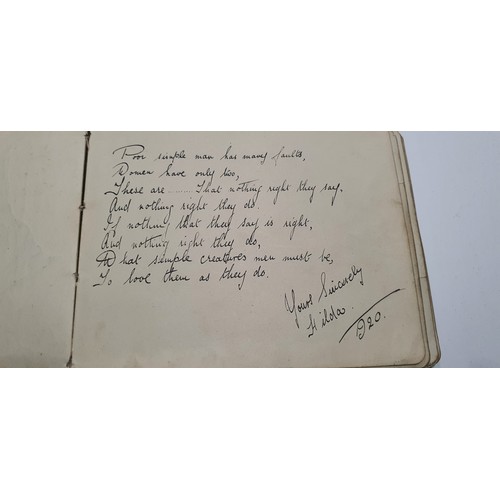 Poor simple man has many faults,
Women have only two,
These are ........ That nothing right they say,
And nothing right they do.
If nothing that they say is right,
And nothing right they do,
What simple creatures men must be,
To love them as they do.
Yours Sincerely
Hilda.
1920.